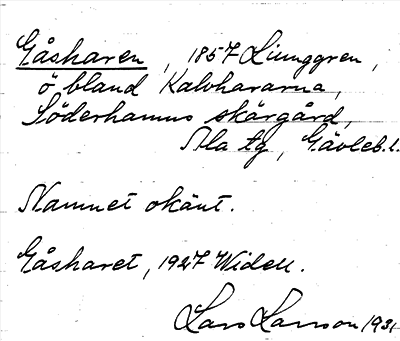 Gåsharen, 1857 Ljunggren,
ö bland Kalvhararna,
Söderhamns skärgård,
Ala tg, Gävleb. l.
Namnet okänt.
Gåsharet, 1927 Widell.
Lars Larsson 1931